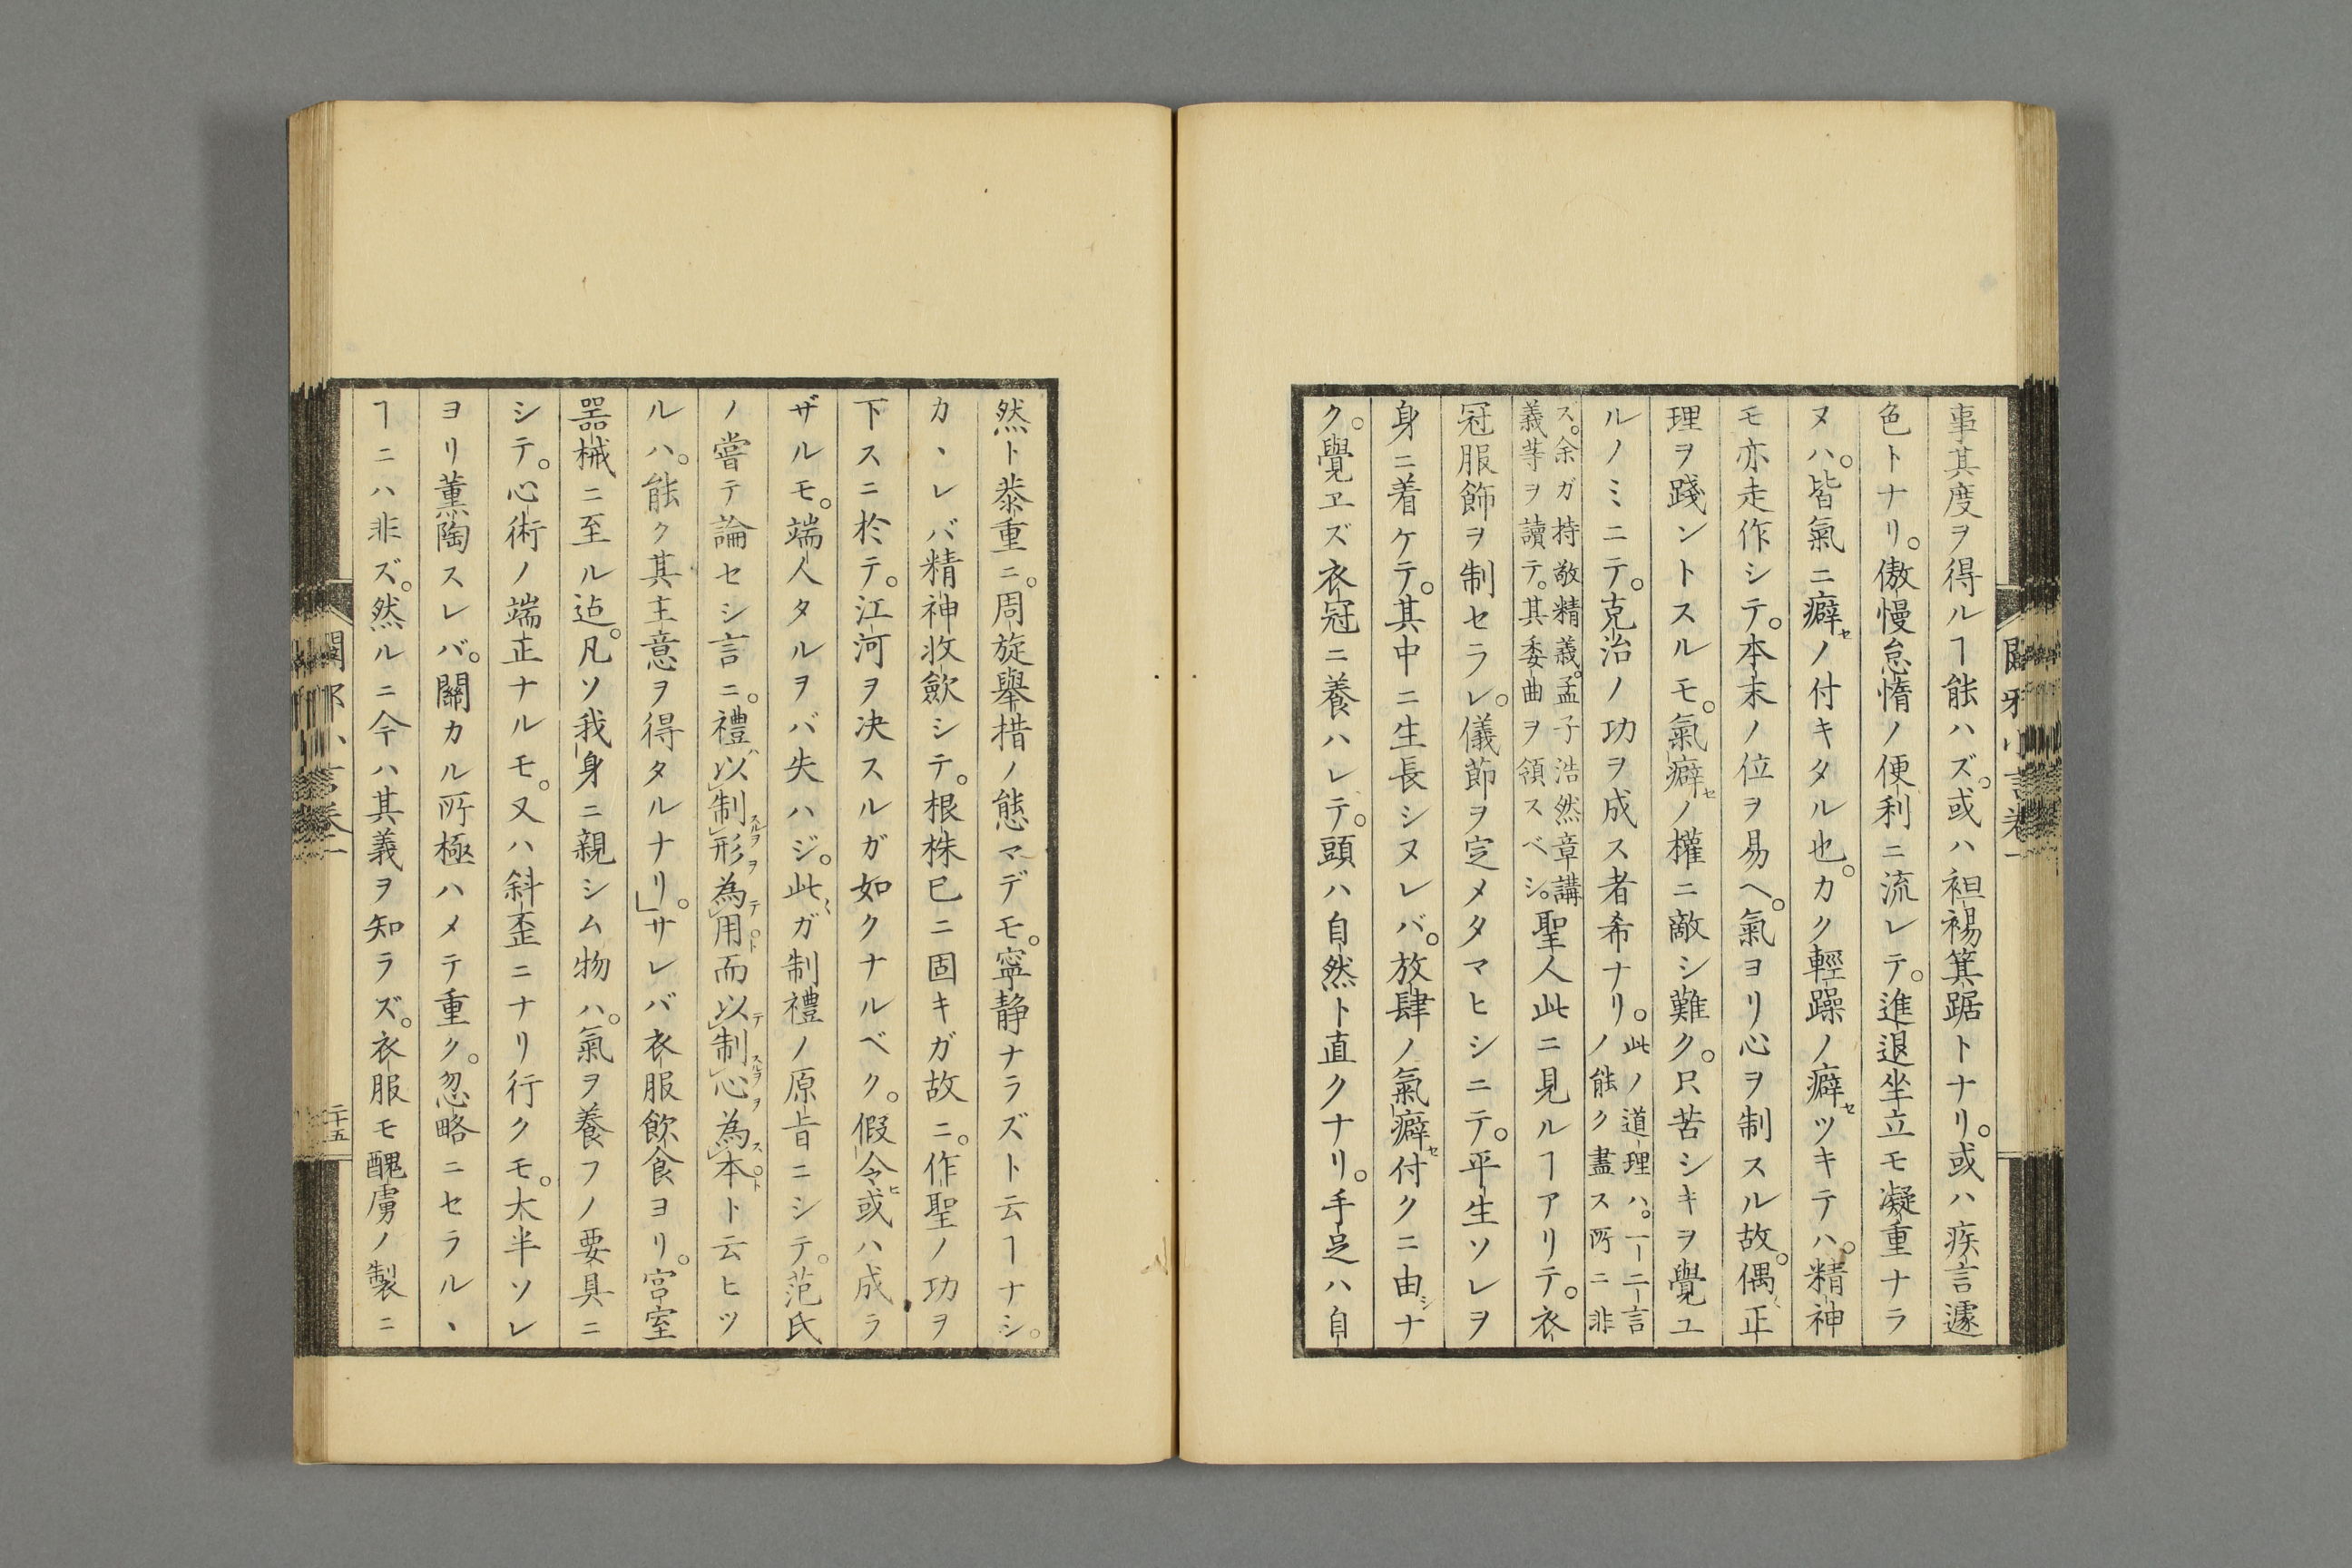 事其度ヲ得ルヿ能ハズ。或ハ袒裼箕踞トナリ。或ハ疾言遽
色トナリ。傲慢怠惰ノ便利ニ流レテ。進退坐立モ凝重ナラ
ヌハ。皆氣ニ癖セノ付キタル也。カク輕躁ノ癖セツキテハ。精神
モ亦走作シテ。本末ノ位ヲ易ヘ。氣ヨリ心ヲ制スル故。偶〻正
理ヲ踐ントスルモ。氣癖セノ權ニ敵シ難ク。只苦シキヲ覺ユ
ルノミニテ。克治ノ功ヲ成ス者希ナリ。此ノ道理ハ。一二言
ノ能ク盡ス所ニ非
ス。余ガ持敬精義。孟子浩然章講
義等ヲ讀テ。其委曲ヲ領スベシ。聖人此ニ見ルヿアリテ。衣
冠服飾ヲ制セラレ。儀節ヲ定メタマヒシニテ。平生ソレヲ
身ニ着ケテ。其中ニ生長シヌレバ。放肆ノ氣癖セ付クニ由シナ
ク。覺ヱズ衣冠ニ養ハレテ。頭ハ自然ト直クナリ。手足ハ自
然ト恭重ニ。周旋舉措ノ態マデモ。寧静ナラズト云ヿナシ。
カヽレバ精神收歛シテ。根株已ニ固キガ故ニ。作聖ノ功ヲ
下スニ於テ。江河ヲ决スルガ如クナルベク。假令ヒ或ハ成ラ
ザルモ。端人タルヲバ失ハジ。此〻ガ制禮ノ原旨ニシテ。范氏
ノ嘗テ論セシ言ニ。禮ハ以制スルヲ形ヲ為テ用ト而以テ制スルヲ心ヲ為ス本トト云ヒツ
ルハ。能ク其主意ヲ得タルナリ。」サレバ衣服飲食ヨリ。宮室
器械ニ至ル迠。凡ソ我身ニ親シム物ハ。氣ヲ養フノ要具ニ
シテ。心術ノ端正ナルモ。又ハ斜歪ニナリ行クモ。大半ソレ
ヨリ薫陶スレバ。關カル所極ハメテ重ク。忽略ニセラルヽ
ヿニハ非ズ。然ルニ今ハ其義ヲ知ラズ。衣服モ醜虜ノ製ニ
二十五